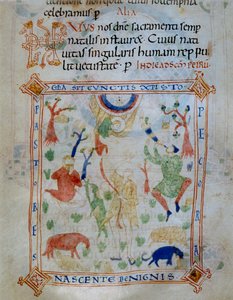 celebramus p Alia
nos dne sacramenti semp
natalis instauret. Cuius nati
uitas singularis humana repu
lit uetustate. p IN DIE AD SCM PETRU
SIT CUNCTIS XPISTO
PASTORES
PECORA
NASCENTE BENIGNIS